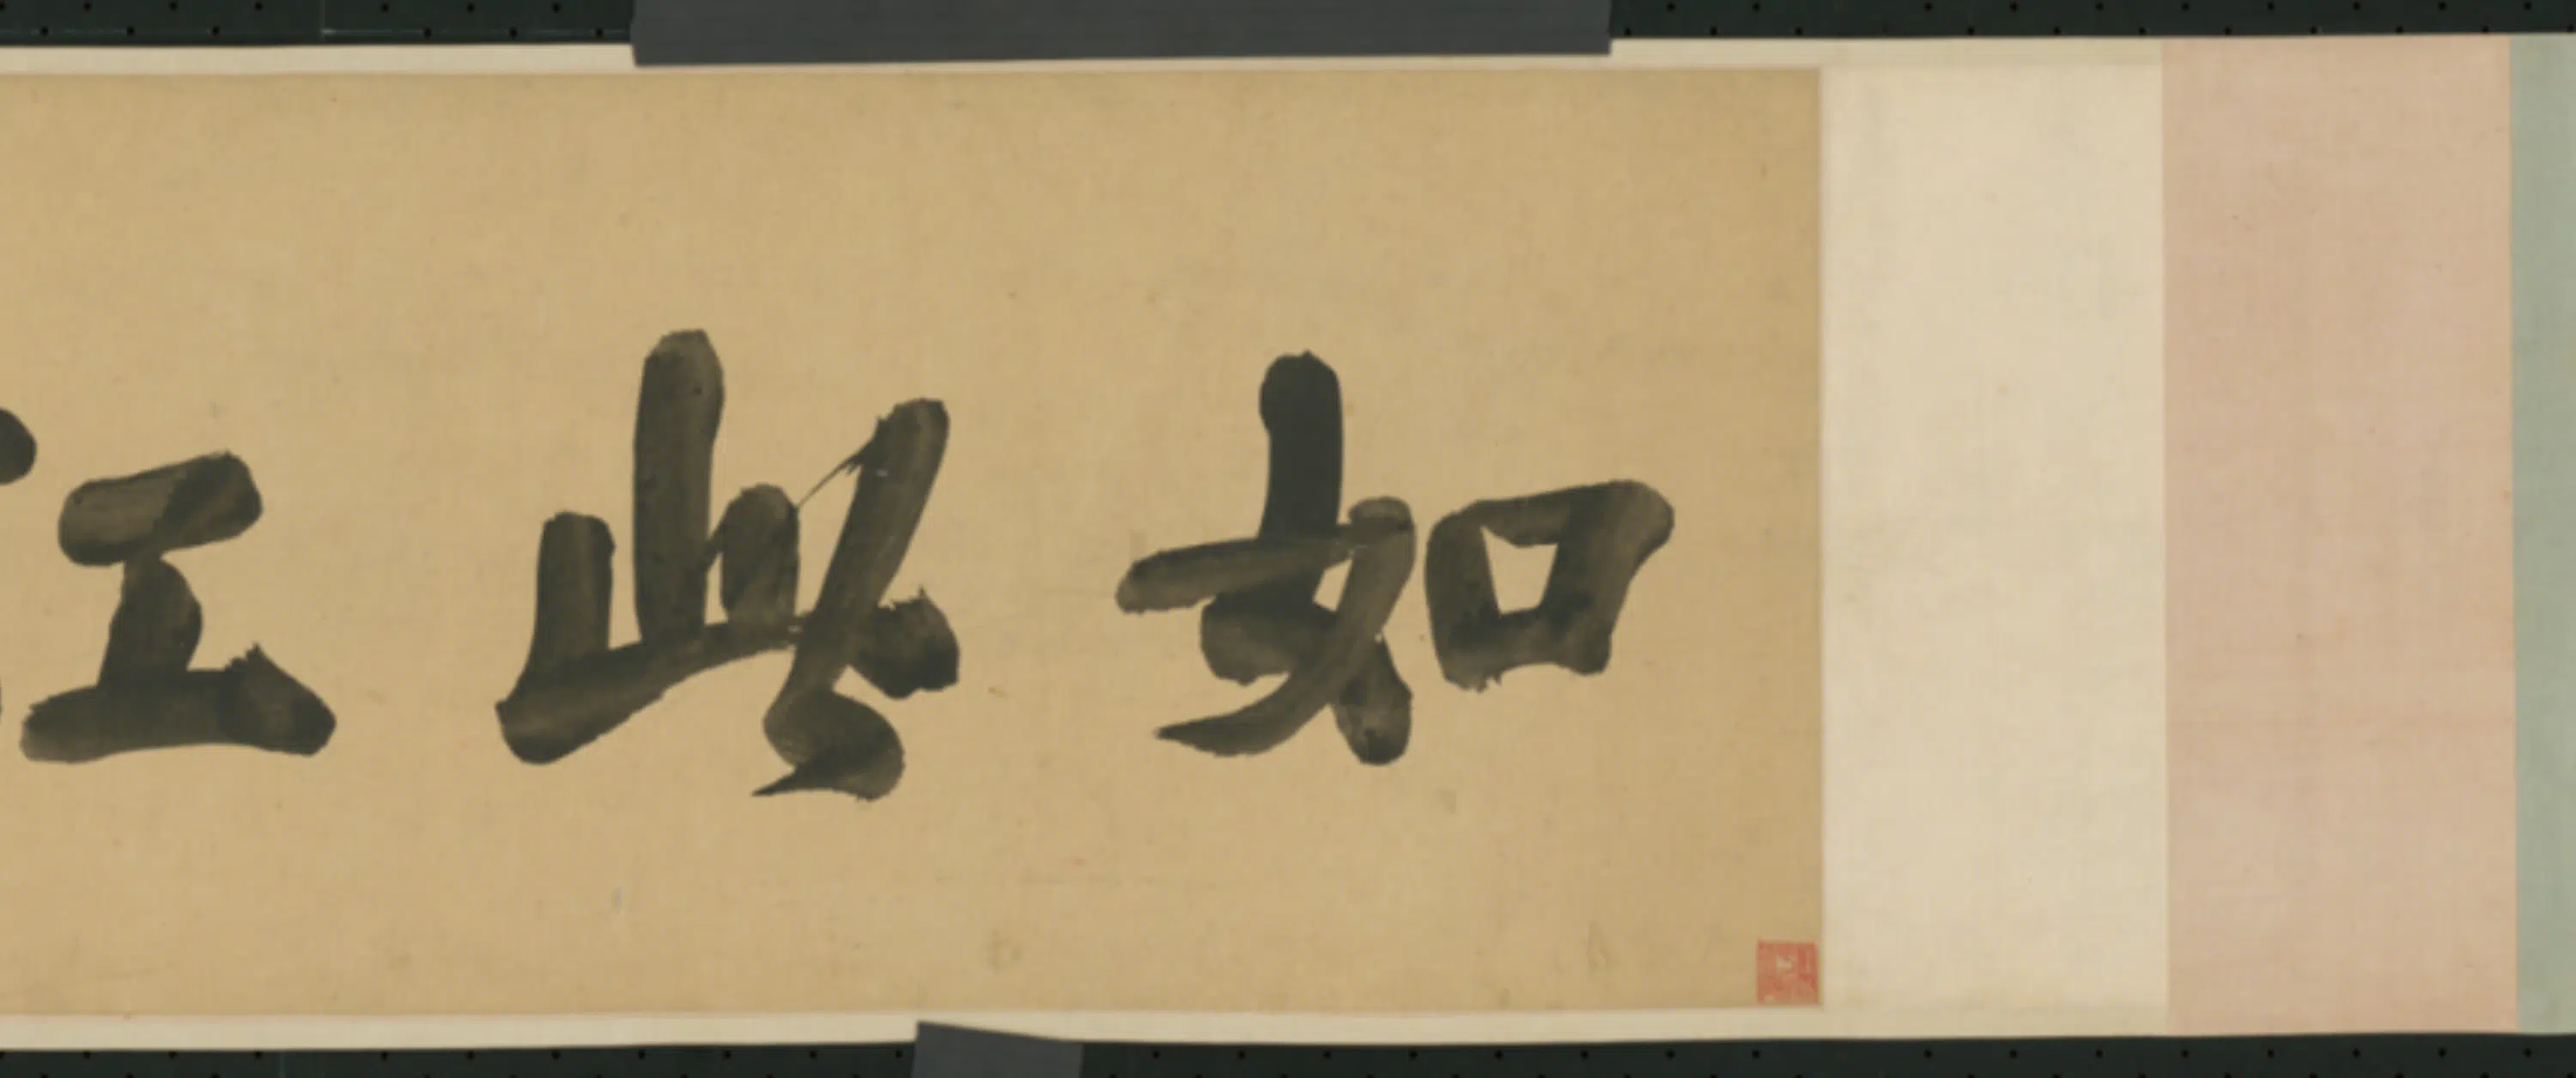 如此江